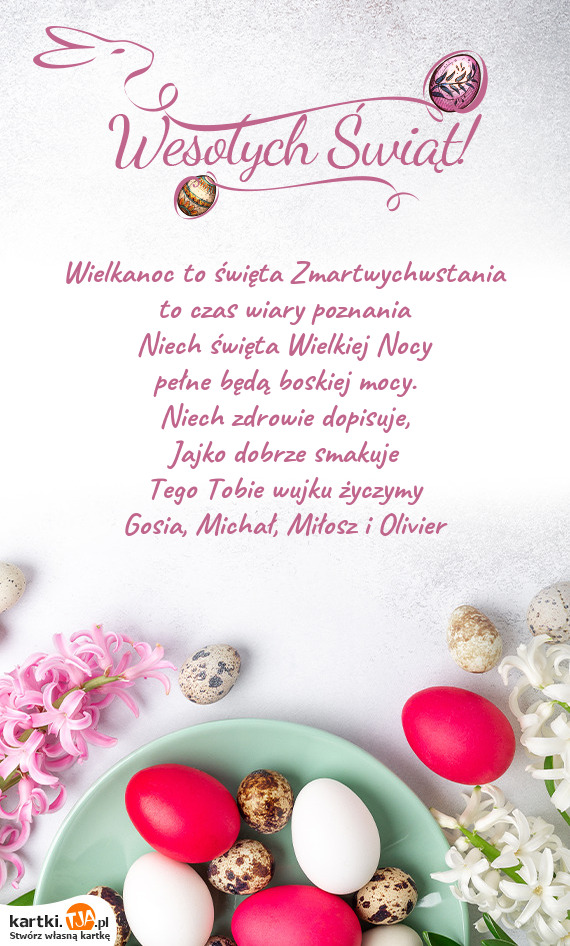 Wesołych Świąt!
Wielkanoc to święta Zmartwychwstania
to czas wiary poznania
Niech święta Wielkiej Nocy
pełne będą boskiej mocy.
Niech zdrowie dopisuje,
Jajko dobrze smakuje
Tego Tobie wujku życzymy
Gosia, Michał, Miłosz i Olivier
kartki.TJA.pl
Stwórz własną kartkę